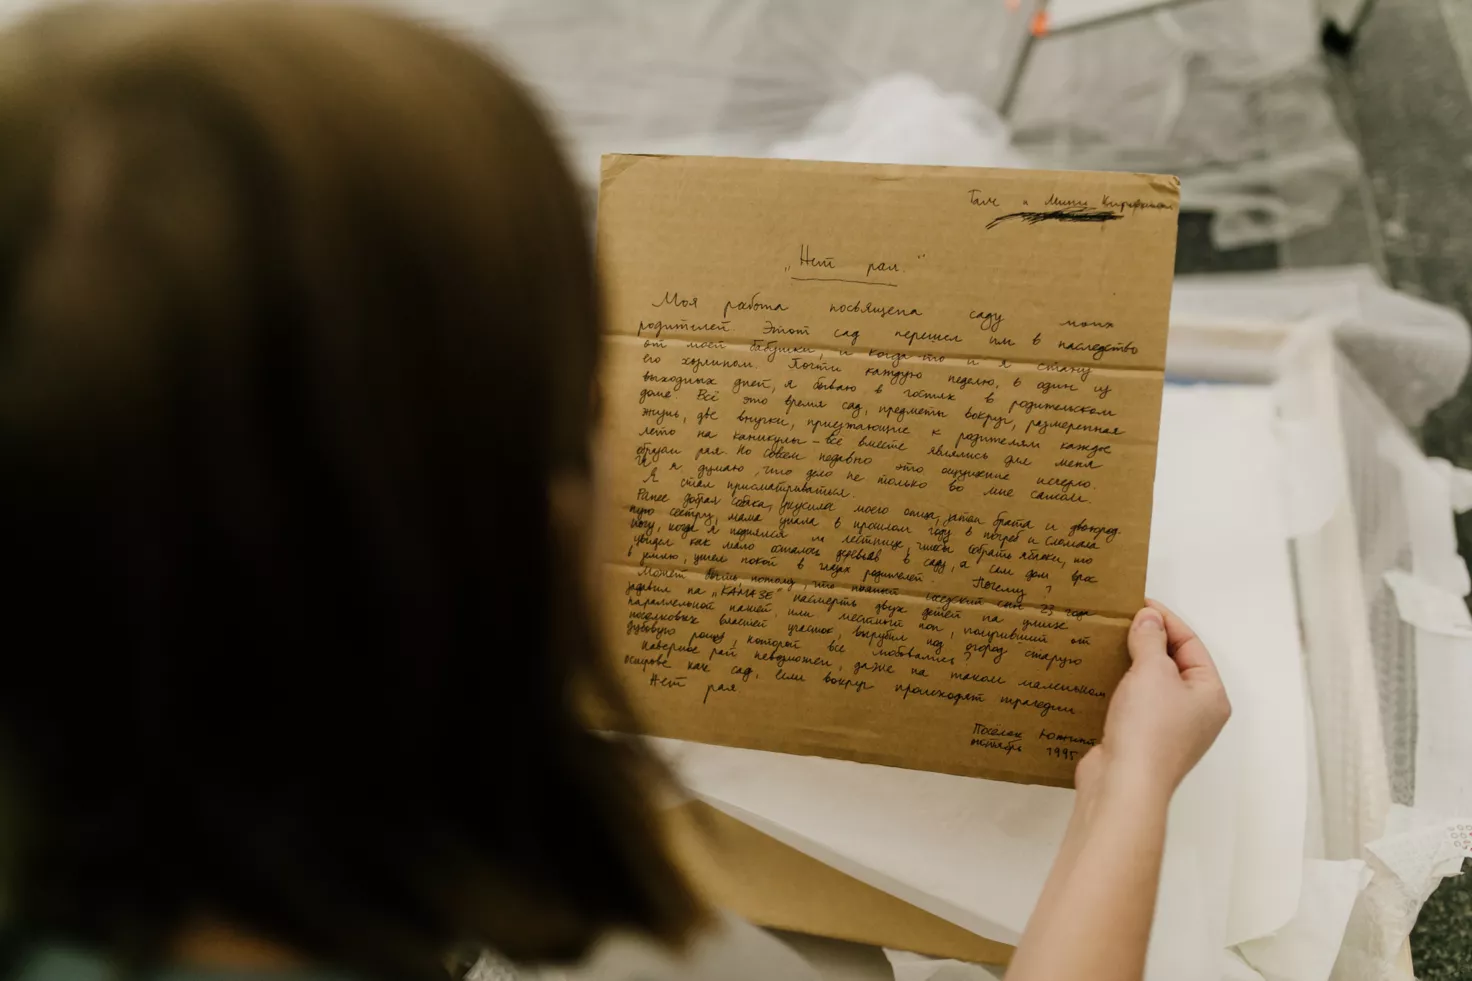 Гале и Мише
„Нет рая."
Моя работа посвящена саду моих
родителей. Этот сад перешел им в наследство
от моей бабушки, и когда-то и я стану
его хозяином. Почти каждую неделю, в один из
выходных дней, я бываю в гостях в родительском
доме. Всё это время сад, предметы вокруг, размеренная
жизнь, две внучки, приезжающие к родителям каждое
лето на каникулы – всё вместе являлись для меня
образом рая. Но совсем недавно это ощущение исчезло.
И я думаю, что дело не только во мне самом.
Я стал присматриваться.
Ранее добрая собака, укусила моего отца, затем брата и двоюрод-
ную сестру, мама упала в прошлом году в погреб и сломала
ногу, когда я поднялся по лестнице, чтобы собрать яблоки, то
увидел как мало осталось деревьев в саду, а сам дом врос
в землю, ушел покой в глазах родителей. Почему?
Может быть потому, что пьяный соседский сын 23 года
задавил на „КАМАЗЕ" насмерть двух детей на улице
параллельной нашей, или местный поп, получивший от
поселковых властей участок, вырубил под огород старую
дубовую рощу, которой все любовались?
Наверное рай невозможен, даже на таком маленьком
острове как сад, если вокруг происходят трагедии.
Нет рая.
Поселок Южный
октябрь 1995